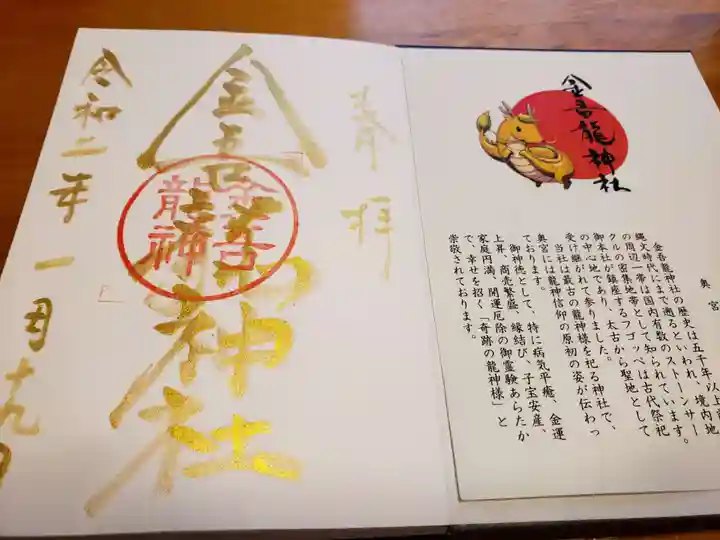 奉拝
金吾龍神社
金吾龍神
令和二年一月十九日
金吾龍神社
奥宮
金吾龍神社の歴史は五千年以上
縄文時代にまで遡るといわれ、境内地
の周辺一帯は国内有数のストーンサー
クルの密集地帯として知られています。
御本社が鎮座するフゴッペは古代祭祀
の中心地であり、太古から聖地として
受け継がれて参りました。
当社は最古の龍神様を祀る神社で、
奥宮には龍神信仰の原初の姿が伝わっ
ております。
御神徳として、特に病気平癒、金運
上昇、商売繁盛、縁結び、子宝安産、
家庭円満、開運厄除の御霊験あらたか
で、幸せを招く「奇跡の龍神様」と
崇敬されております。